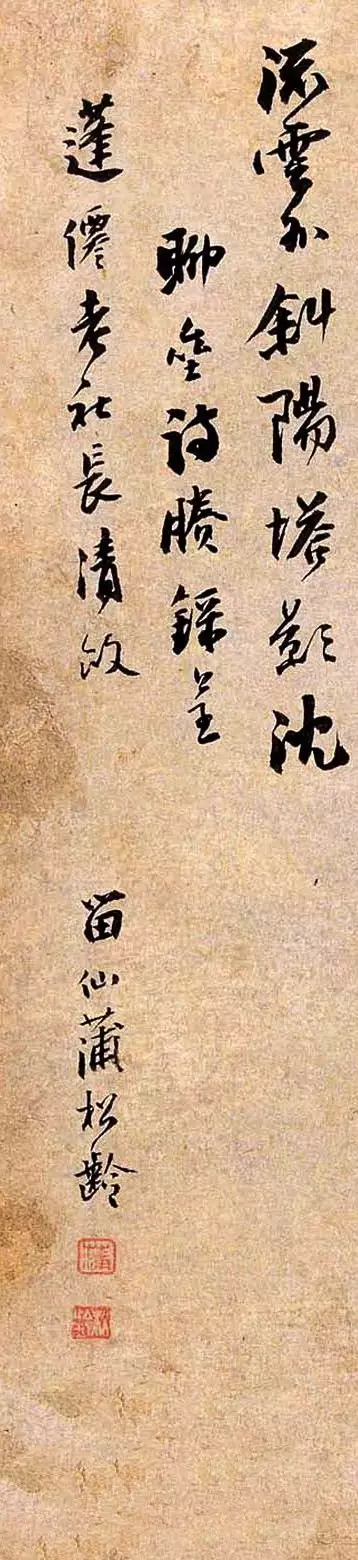 流雲外斜陽塔影沈
聊詩賸錄呈
蓬僊老社長清政
留仙蒲松齡